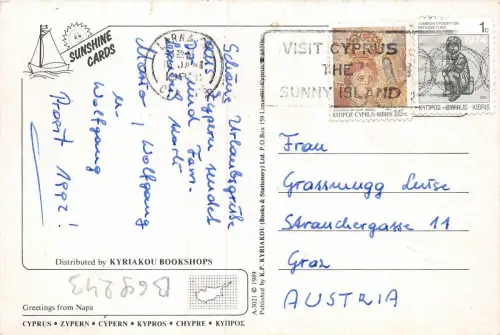 SUNSHINE
CARDS
LARNACA
VISIT CYPRUS
THE
SUNNY ISLAND
ΚΥΠΡΟΣ-CYPRUS-KIBRIS 15c
1c
ΚΥΠΡΟΣ-CYPRUS-KIBRIS
Schöne Urlaubsgrüße
aus Zypern sendet
Dir und Fam.
Mario, Wolfgang
u.
Wolfgang
Prost 1992!
Frau
Grassmugg Luise
Strauchergasse 11
Graz
AUSTRIA
A3021 © 1989
Published by K.P. KYRIAKOU (Books & Stationery) Ltd. P.O.Box 159 Limassol-Cyprus
Distributed by KYRIAKOU BOOKSHOPS
B698243
Greetings from Napa
CYPRUS • ZYPERN • CYPERN • KYPROS • CHYPRE • ΚΥΠΡΟΣ